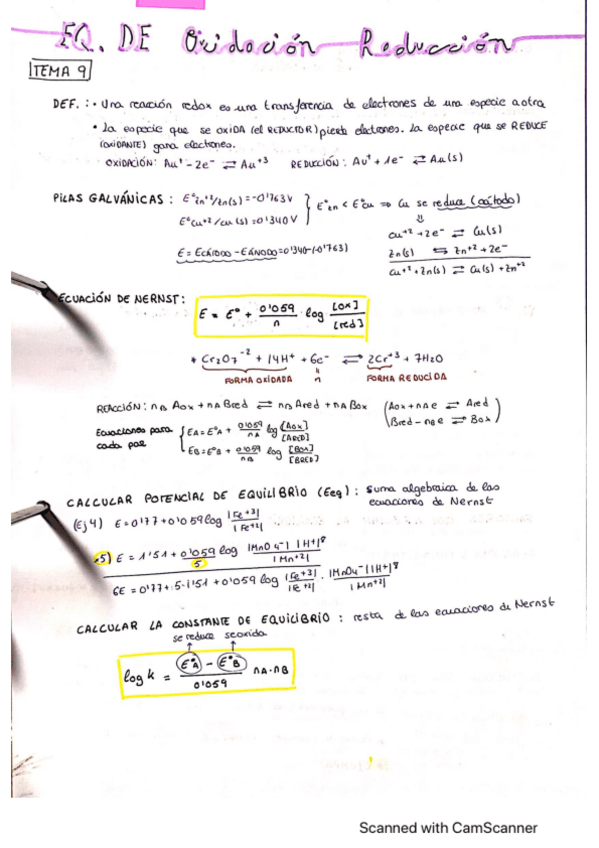 EQ. DE Oxidación Reducción
TEMA 9
DEF.: · Una reacción redox es una transferencia de electrones de una especie a otra
· La especie que se OXIDA (el REDUCTOR) pierde electrones. La especie que se REDUCE
(OXIDANTE) gana electrones.
OXIDACIÓN: Au⁺ - 2e⁻ ⇌ Au⁺³ REDUCCIÓN: Au⁺ + 1e⁻ ⇌ Au(s)
PILAS GALVÁNICAS: E°Zn⁺²/Zn(s) = -0'763V
E°Cu⁺²/Cu(s) = 0'340V
E°Zn < E°Cu ⇒ Cu se reduce (cátodo)
⇓
E = ECÁTODO - EÁNODO = 0'340-(-0'763)
Cu⁺² + 2e⁻ ⇌ Cu(s)
Zn(s) ⇌ Zn⁺² + 2e⁻
Cu⁺² + Zn(s) ⇌ Cu(s) + Zn⁺²
ECUACIÓN DE NERNST: E = E° + 0'059/n log [ox]/[red]
+ Cr₂O₇⁻² + 14H⁺ + 6e⁻ ⇌ 2Cr⁺³ + 7H₂O
FORMA OXIDADA n FORMA REDUCIDA
REACCIÓN: nB Aox + nA Bred ⇌ nB Ared + nA Box (Aox + nAe ⇌ Ared
Bred - nBe ⇌ Box)
Ecuaciones para
cada par
EA = E°A + 0'059/nA log [Aox]/[ARED]
EB = E°B + 0'059/nB log [Box]/[BRED]
CALCULAR POTENCIAL DE EQUILIBRIO (Eeq): Suma algebraica de las
ecuaciones de Nernst
(Ej 4) E = 0'77 + 0'059 log |Fe⁺³|/|Fe⁺²|
·5) E = 1'51 + 0'059/5 log |MnO₄⁻| |H⁺|⁸/|Mn⁺²|
6E = 0'77 + 5·1'51 + 0'059 log |Fe⁺³|/|Fe⁺²| · |MnO₄⁻| |H⁺|⁸/|Mn⁺²|
CALCULAR LA CONSTANTE DE EQUILIBRIO: resta de las ecuaciones de Nernst
se reduce se oxida
log k = E°A - E°B/0'059 nA·nB
Scanned with CamScanner